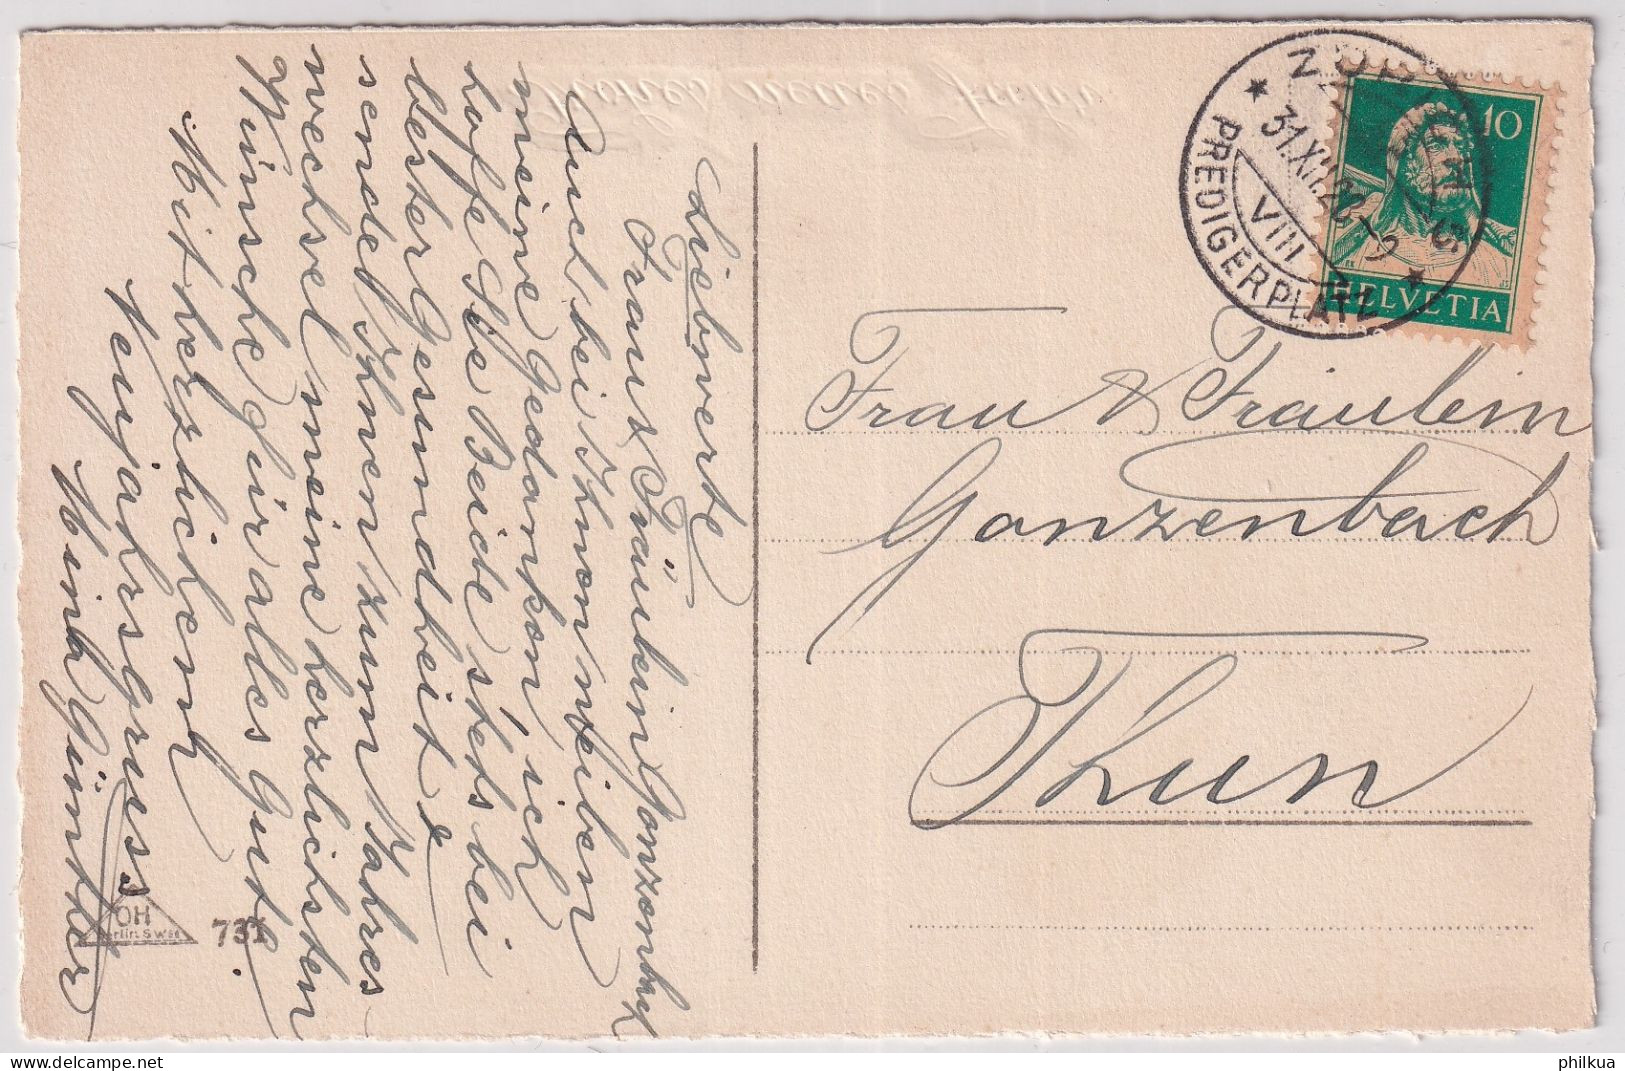 Liebwerte
Frau & Fräulein Ganzenbach
Auch bei Ihnen weilen
meine Gedanken, ich
hoffe Sie Beide stets bei
bester Gesundheit &
sendet Ihnen zum Jahres
wechsel meine herzlichsten
Wünsche für alles Gute.
Mit herzlichem
Neujahrsgruss
Günther
OH
Berlin SW68
731
Frohes neues Jahr
ZÜRICH
31.XII.
VIII
PREDIGERPLATZ
10
HELVETIA
Frau & Fräulein
Ganzenbach
Thun
philkua